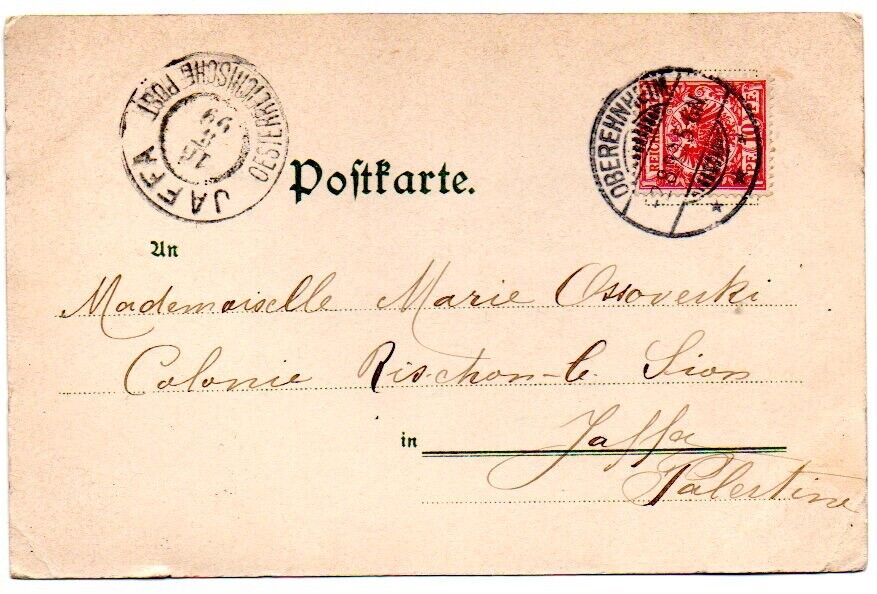 OESTERREICHISCHE POST
16
99
JAFFA
OBEREHNHEIM
REICHSPOST
10
Postkarte.
An
Mademoiselle Marie Ossoveski
Colonie Rischon-l. Sion
in Jaffa
Palestine